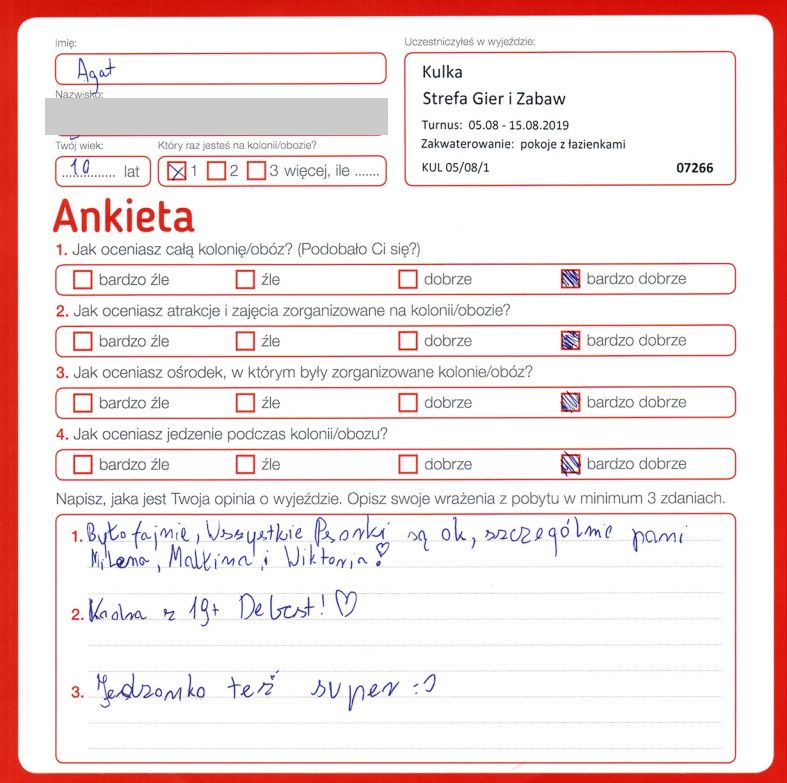 Imię:
Agat
Uczestniczyłeś w wyjeździe:
Kulka
Strefa Gier i Zabaw
Turnus: 05.08 - 15.08.2019
Zakwaterowanie: pokoje z łazienkami
KUL 05/08/1 07266
Nazwisko:
Twój wiek:
10 lat
Który raz jesteś na kolonii/obozie?
1 2 3 więcej, ile .......
Ankieta
1. Jak oceniasz całą kolonię/obóz? (Podobało Ci się?)
bardzo źle źle dobrze bardzo dobrze
2. Jak oceniasz atrakcje i zajęcia zorganizowane na kolonii/obozie?
bardzo źle źle dobrze bardzo dobrze
3. Jak oceniasz ośrodek, w którym były zorganizowane kolonie/obóz?
bardzo źle źle dobrze bardzo dobrze
4. Jak oceniasz jedzenie podczas kolonii/obozu?
bardzo źle źle dobrze bardzo dobrze
Napisz, jaka jest Twoja opinia o wyjeździe. Opisz swoje wrażenia z pobytu w minimum 3 zdaniach.
1. Było fajnie, Wszystkie są ok, szczególnie pani
Milena, i Wiktoria!
2. Kadra z 19+ De best! ♡
3. Jedzonko też super :)